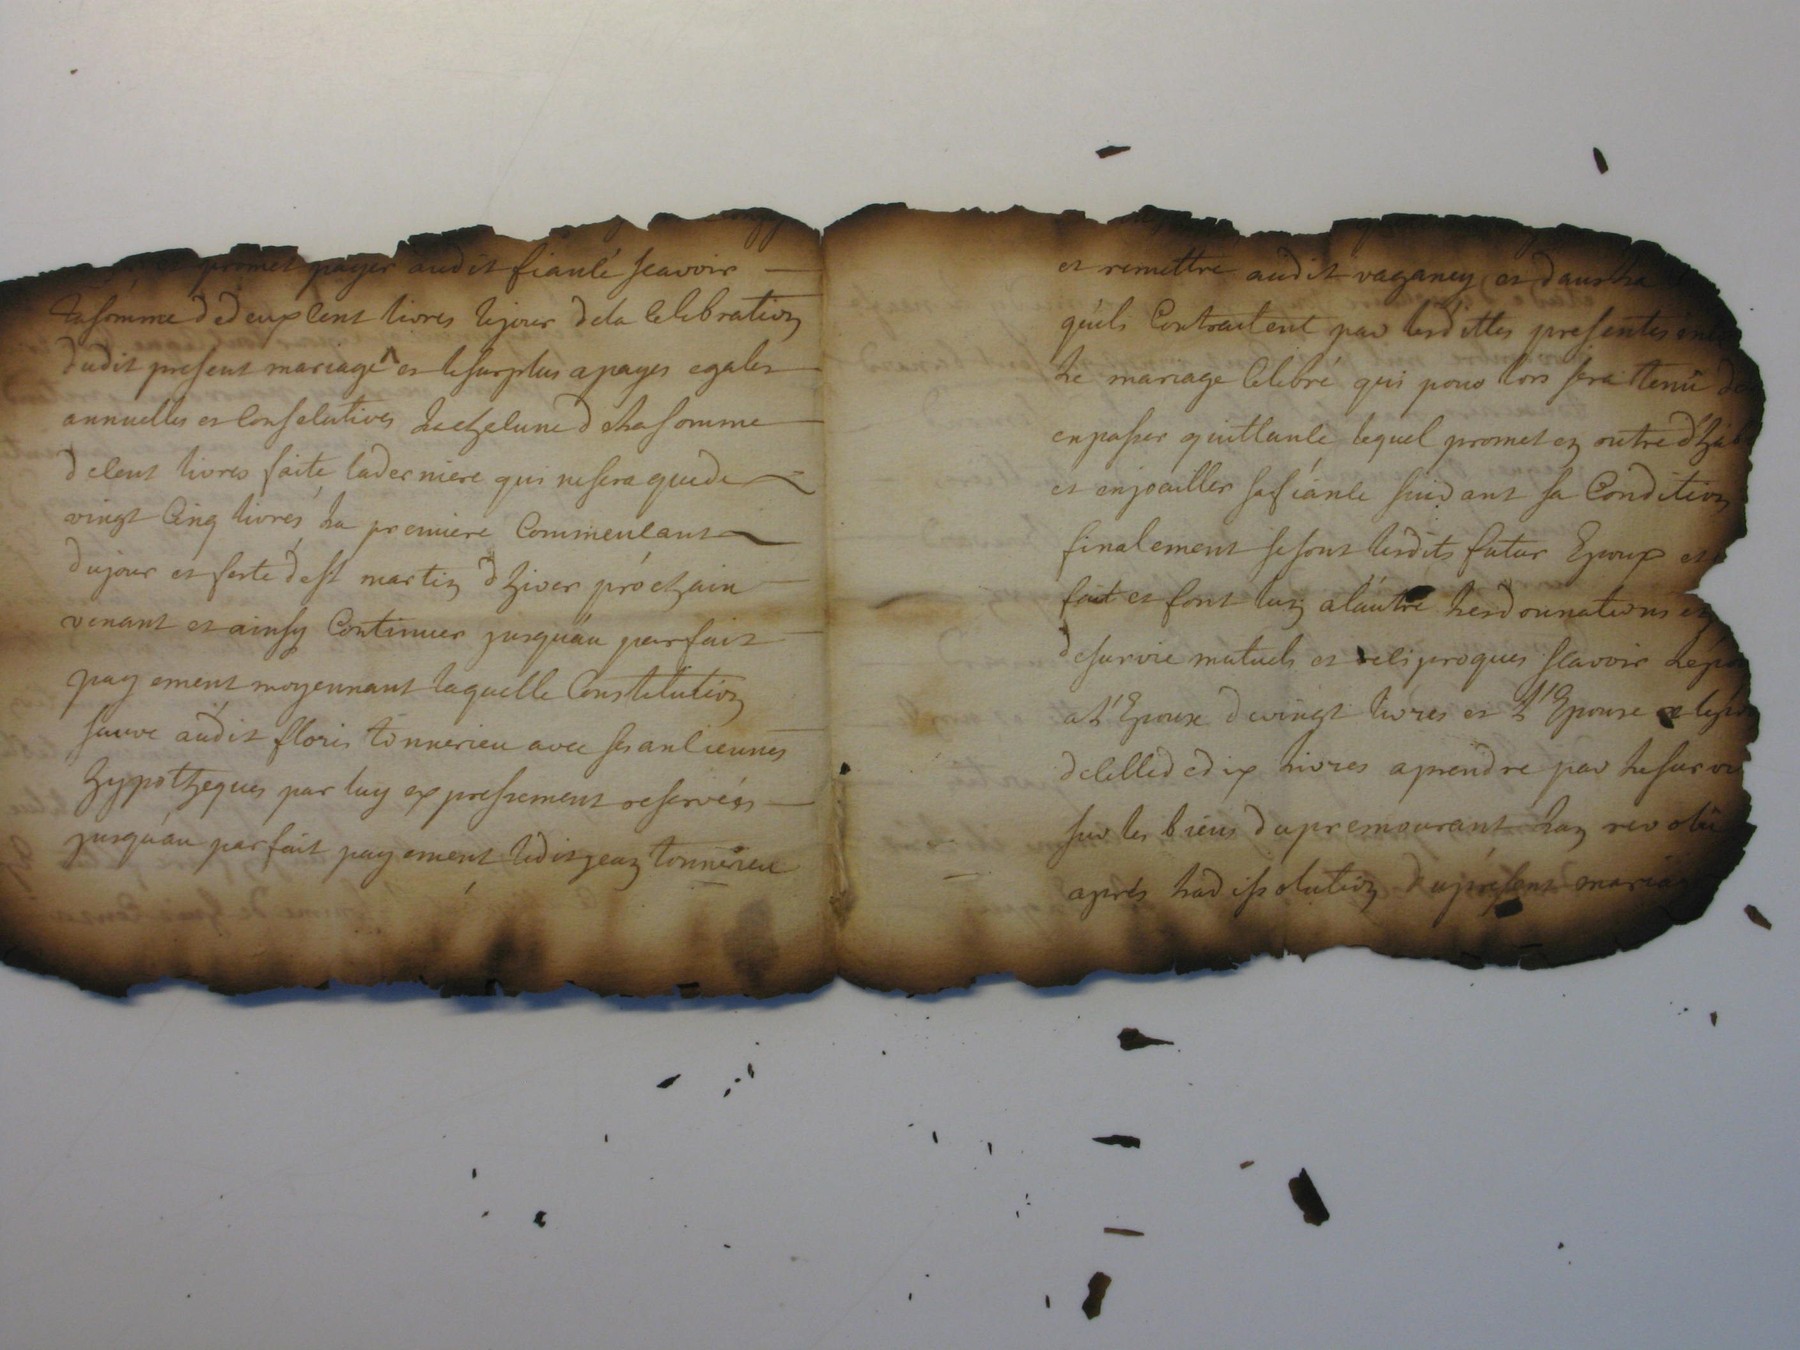 et promet payer audit fiancé scavoir
La somme de deux cent livres le jour de la Celebration
dudit present mariage et le surplus a payes egales
annuelles et Consecutives Lachacune de La somme
de cent livres faite la derniere qui ne sera que de
vingt Cinq livres, La premiere Commencant
du jour et feste de st martin d'hiver prochain
venant et ainsy Continuer jusqu'au parfait
payement moyennant laquelle Constitution
sauve audit floris tonnerieu avec ses anciennes
hypotheques par luy expressement reservées
jusqu'au parfait payement ledit jean tonnerieu
et remettre audit vaganey, et dans La
quels Contractent par lesdittes presentes
Le mariage Celebré qui pour lors sera tenû
en passer quittance lequel promet en outre
et enjoailler sa fiancée suivant sa Condition
finalement se sont lesdits futur Epoux et
fait et font l'un a l'autre Les donnations
de survie mutuels et reciproques scavoir
a L'Epouse de vingt livres et L'Epouse
de celle de dix livres a prendre par Le
sur les biens du premourant L'an revolû
aprés La dissolution du présent